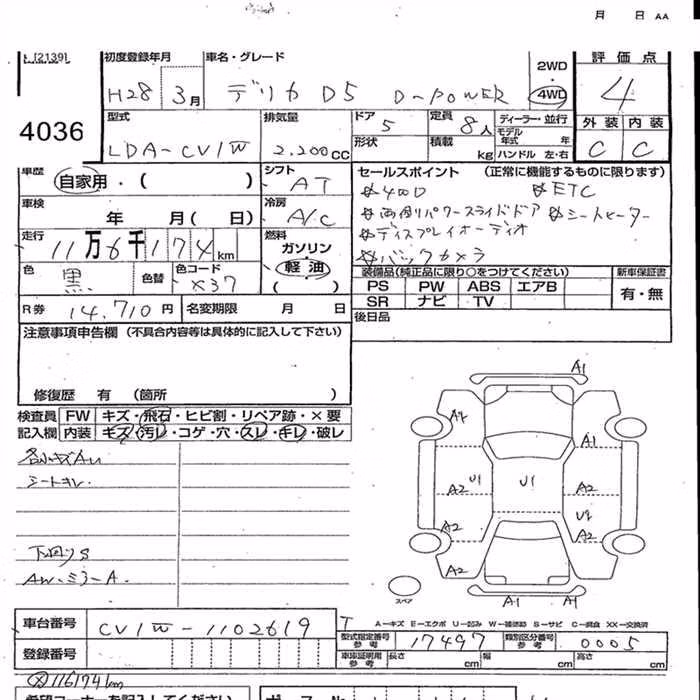 月 日 AA
[2139]
初度登録年月 車名・グレード 2WD・4WD 評価点
H28 3月 デリカ D5 D-POWER 4
4036
型式 排気量 ドア 定員 ディーラー・並行 外装 内装
LDA-CV1W 2.200cc 5 8人 モデル年式 年 C C
形状 積載 kg ハンドル 左・右
車歴 自家用・( ) シフト AT
セールスポイント (正常に機能するものに限ります)
☆4WD ☆ETC
☆両側パワースライドドア ☆シートヒーター
☆ディスプレイオーディオ
☆バックカメラ
車検 年 月( 日) 冷房 A/C
走行 11万6千174km 燃料 ガソリン 軽油 ( )
色 黒 色替 色コード X37
装備品(純正品に限り○をつけてください) 新車保証書
PS PW ABS エアB 有・無
SR ナビ TV
R券 14,710円 名変期限 月 日
後日品
注意事項申告欄 (不具合内容等は具体的に記入して下さい)
修復歴 有 (箇所 )
検査員 FW キズ・飛石・ヒビ割・リペア跡・×要
記入欄 内装 キズ・汚レ・コゲ・穴・スレ・キレ・破レ
各小キズAU
シートキレ
下回りS
AW・ミラーA.
A1
A4
A1
A2 U1 U1 A2
A2 U2
A2 A2
A1
スペア
A-キズ E-エクボ U-凹み W-補修跡 S-サビ C-腐食 XX-交換済
車台番号 CV1W-1102619
型式指定番号 参考 17497 類別区分番号 参考 0005
登録番号
車庫証明用 参考 長さ cm 幅 cm 高さ cm
116174km
希望コーナーを記入して下さい